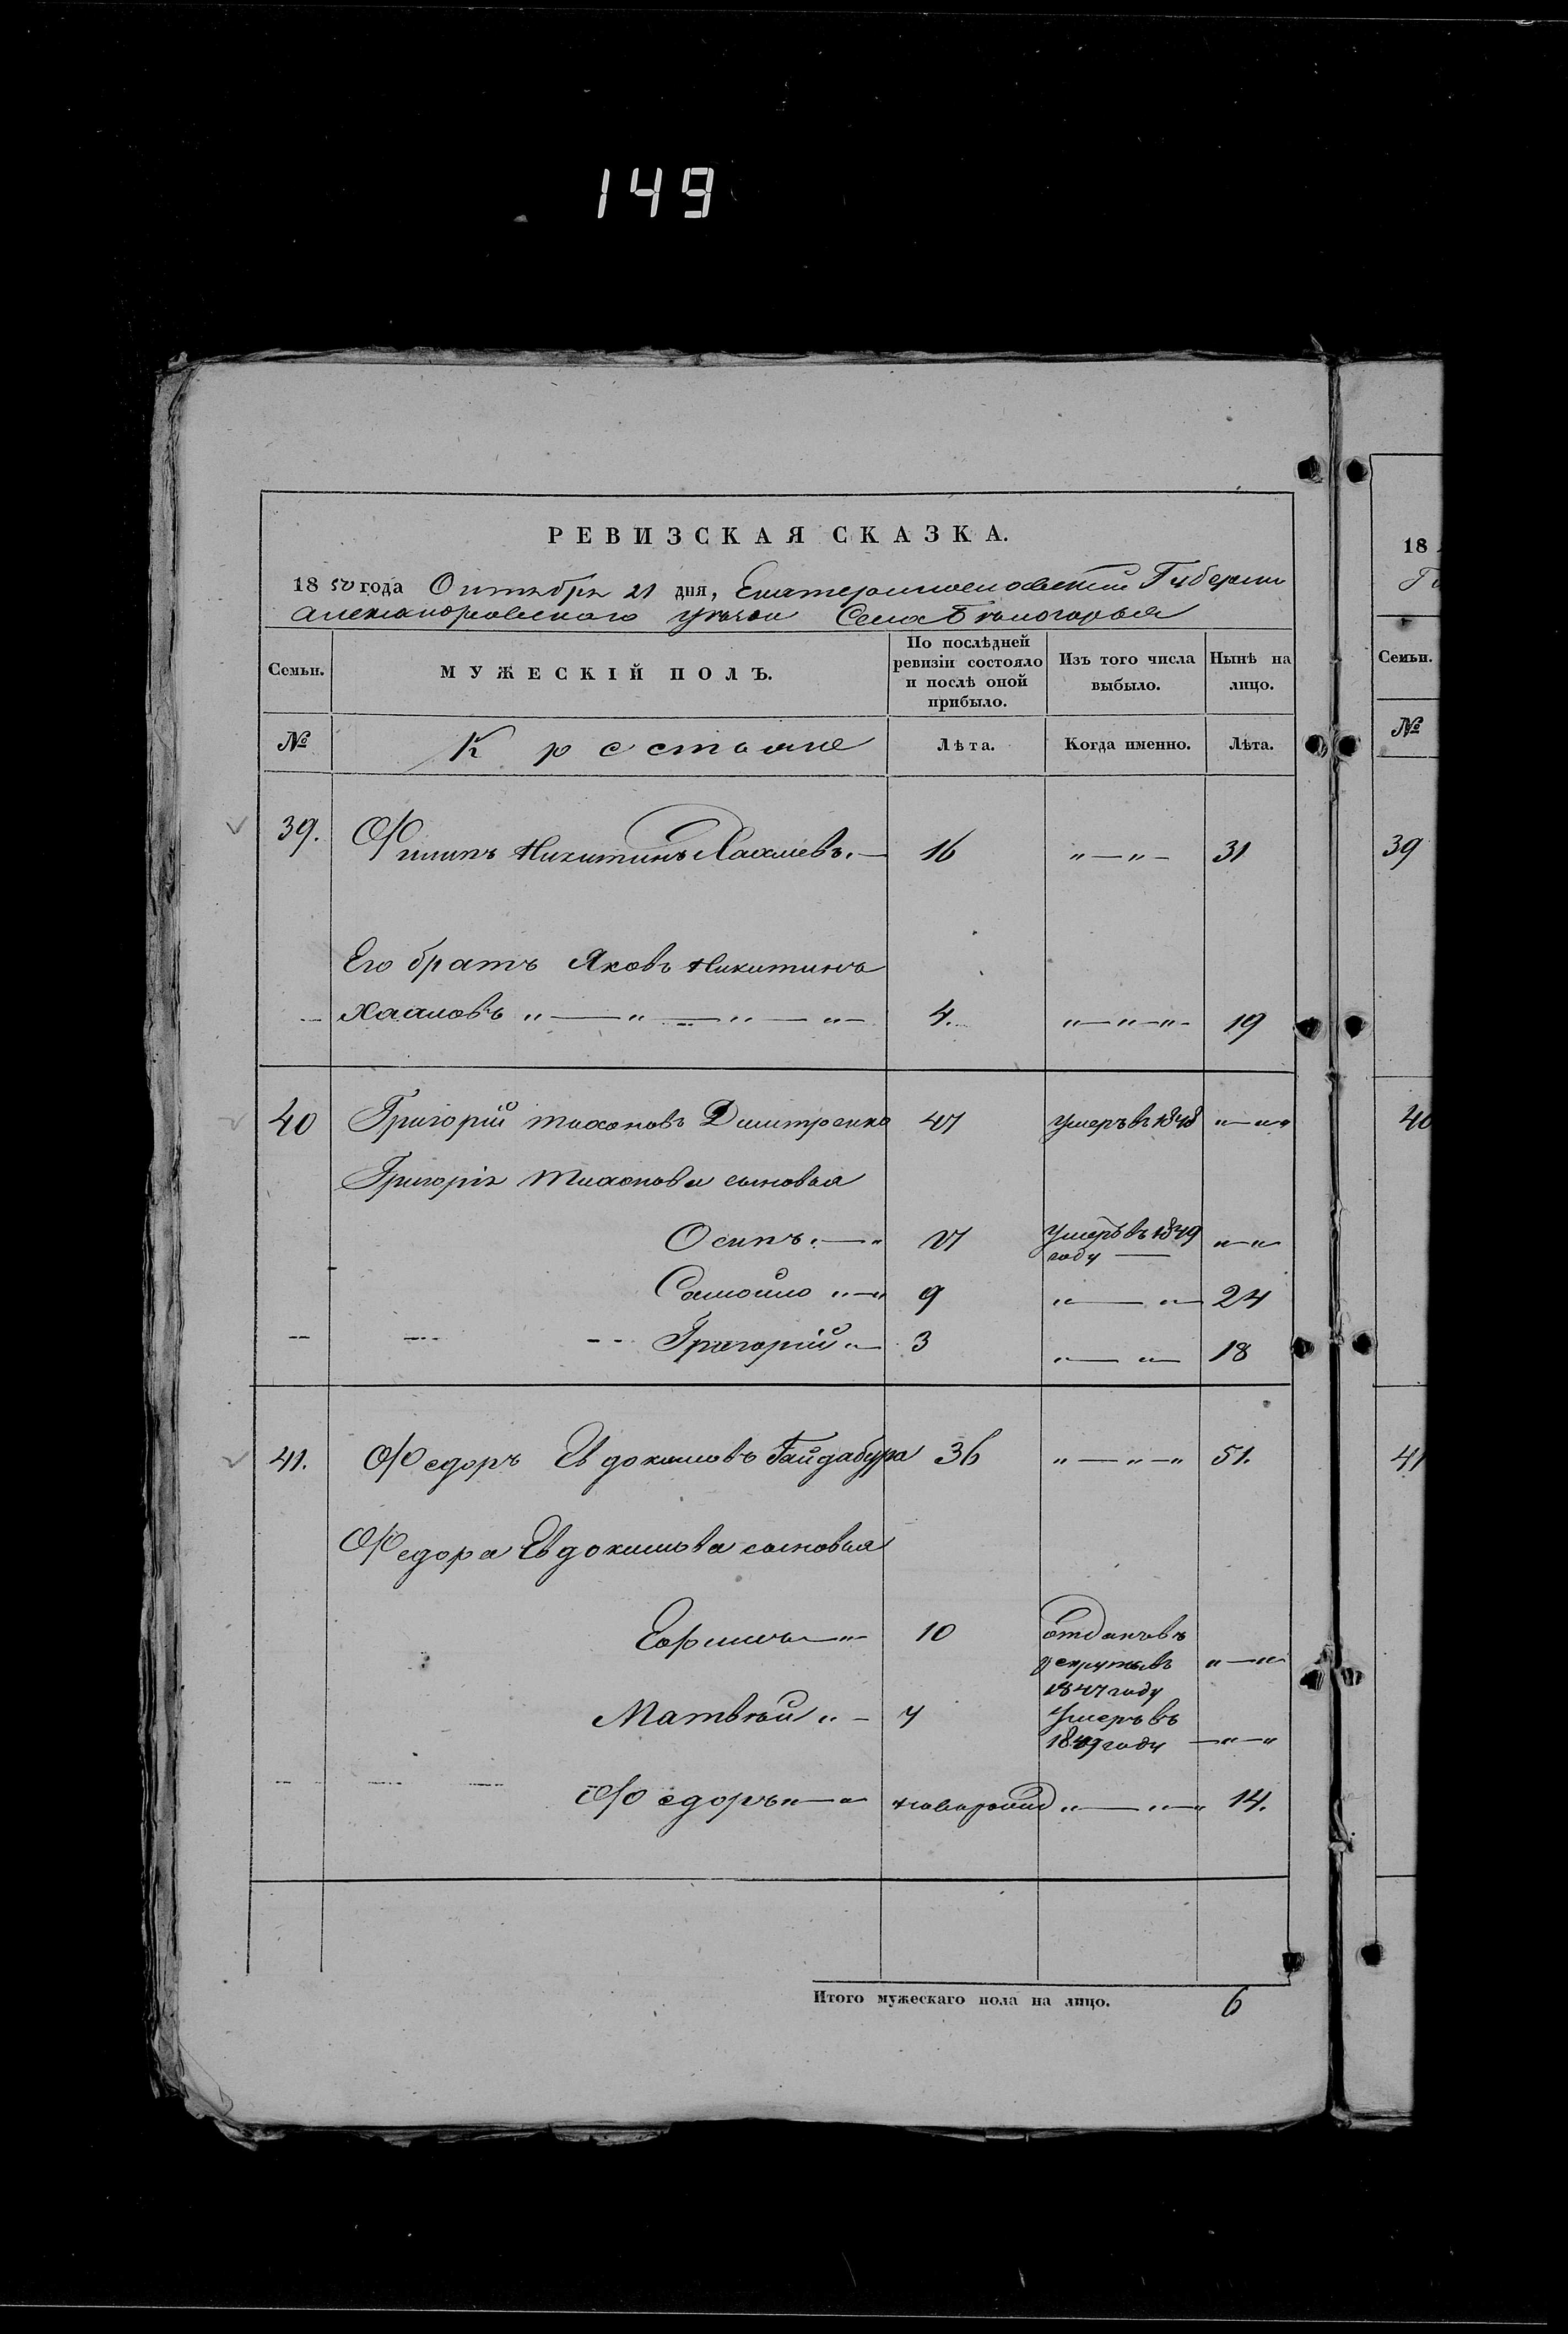 149
РЕВИЗСКАЯ СКАЗКА.
1850 года Октября 21 дня, Екатеринославской Губернии
Александровскаго уѣзда Села Бѣлогорья
Семьи. МУЖЕСКІЙ ПОЛЪ. По послѣдней ревизіи состояло и послѣ оной прибыло. Изъ того числа выбыло. Нынѣ на лицо.
№ Крестьяне Лѣта. Когда именно. Лѣта.
39. Филипъ Никитинъ 16 „—„— 31
Его братъ Яковъ Никитинъ
4. „—„—„— 19
40 Григорій Тихоновъ Дмитренко 47 умеръ въ 1848 „—„„
Григорія Тихонова сыновья
Осипъ.—„ 27 умеръ въ 1849 году — „—„
Самойло „—„ 9 „— „— 24
Григорій „— 3 „— „— 18
41. Федоръ Евдокимовъ Гайдабура 36 „—„—„ 51.
Федора Евдокимова сыновья
Ефимъ—„ 10 отданъ въ рекруты въ 1847 году „—„
Матвѣй „— 7 Умеръ въ 1849 году —„—„
Федоръ „—„ новорожд „—„—„ 14.
Итого мужескаго пола на лицо. 6
18
Семьи.
№
39
40
41